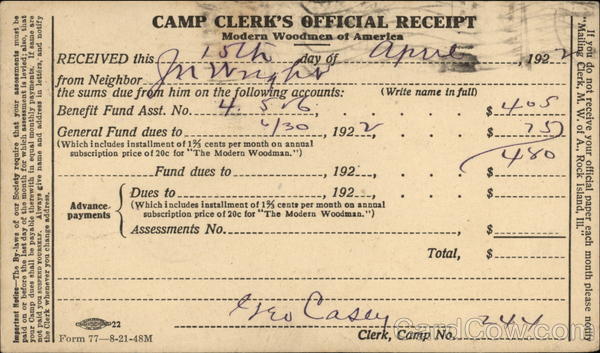 CAMP CLERK'S OFFICIAL RECEIPT
Modern Woodmen of America
RECEIVED this 15th day of April 1922
from Neighbor J M Wright
the sums due from him on the following accounts: (Write name in full)
Benefit Fund Asst. No. 4. 5 & 6 $ 405
General Fund dues to 4/30, 1922 $ 75
(Which includes installment of 1⅔ cents per month on annual
subscription price of 20c for "The Modern Woodman.")
480
Fund dues to 192 $
Advance
payments
Dues to 192 $
(Which includes installment of 1⅔ cents per month on annual
subscription price of 20c for "The Modern Woodman.")
Assessments No. $
Total, $
Geo Casey 244
Clerk, Camp No.
22
Form 77—8-21-48M
Important Notice—The By-laws of our Society require that your assessments must be
paid on or before the last day of the month for which assessment is levied; also, that
your Camp dues shall be payable therewith in equal monthly payments. If same are
not paid YOU SUSPEND YOURSELF. Always give name and address in letters, and notify
the Clerk whenever you change your address.
If you do not receive your official paper each month please notify
"Mailing Clerk, M. W. of A., Rock Island, Ill."
CardCow.com